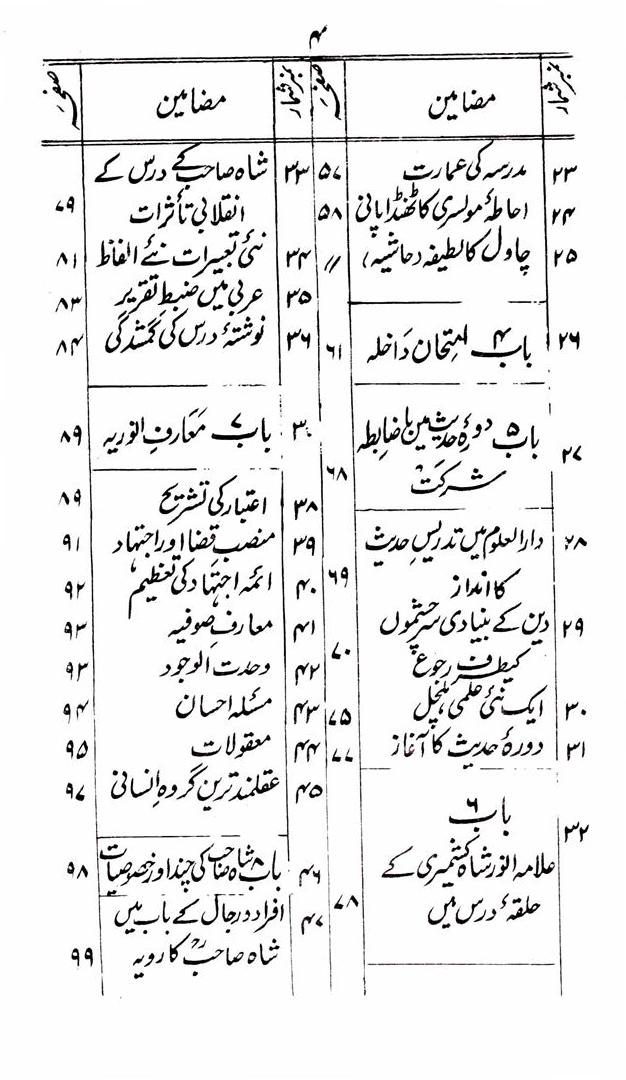 ۴
نمبر شمار مضامین صفحہ
۲۳ مدرسہ کی عمارت ۵۷
۲۴ احاطۂ مولسری کا ٹھنڈا پانی ۵۸
۲۵ چاول کا لطیفہ (حاشیہ) ״
۲۶ باب ۴ امتحان داخلہ ۶۱
۲۷ باب ۵ دورۂ حدیث میں باضابطہ
شرکت ۶۸
۲۸ دارالعلوم میں تدریس حدیث
کا انداز ۶۹
۲۹ دین کے بنیادی سرچشموں
کیطرف رجوع ۷۰
۳۰ ایک نئی علمی ہلچل ۷۵
۳۱ دورۂ حدیث کا آغاز ۷۷
باب ۶
۳۲ علامہ انور شاہ کشمیری کے
حلقۂ درس میں ۷۸
نمبر شمار مضامین صفحہ
۳۳ شاہ صاحب کے درس کے
انقلابی تأثرات ۷۹
۳۴ نئی تعبیرات نئے الفاظ ۸۱
۳۵ عربی میں ضبط تقریر ۸۳
۳۶ نوشتۂ درس کی گمشدگی ۸۴
۳۷ باب ۷ معارف انوریہ ۸۹
۳۸ اعتبار کی تشریح ۸۹
۳۹ منصب قضا اور اجتہاد ۹۱
۴۰ ائمہ اجتہاد کی تعظیم ۹۲
۴۱ معارف صوفیہ ۹۳
۴۲ وحدت الوجود ۹۳
۴۳ مسئلہ احسان ۹۴
۴۴ معقولات ۹۵
۴۵ عقلمند ترین گروہ انسانی ۹۷
۴۶ باب ۸ شاہ صاحب کی چند اور خصوصیات ۹۸
۴۷ افراد و رجال کے باب میں
شاہ صاحبؒ کا رویہ ۹۹